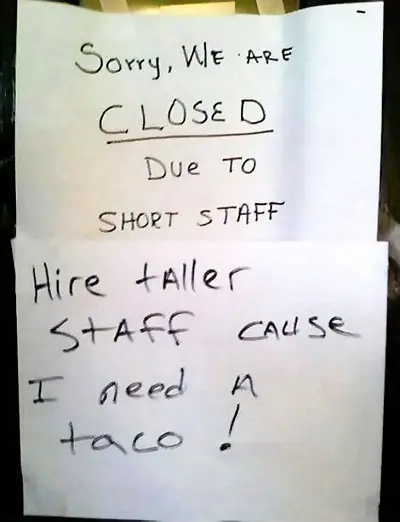 Sorry, WE ARE
CLOSED
DUE TO
SHORT STAFF
Hire tAller
STAFF CAUSE
I need A
taco!